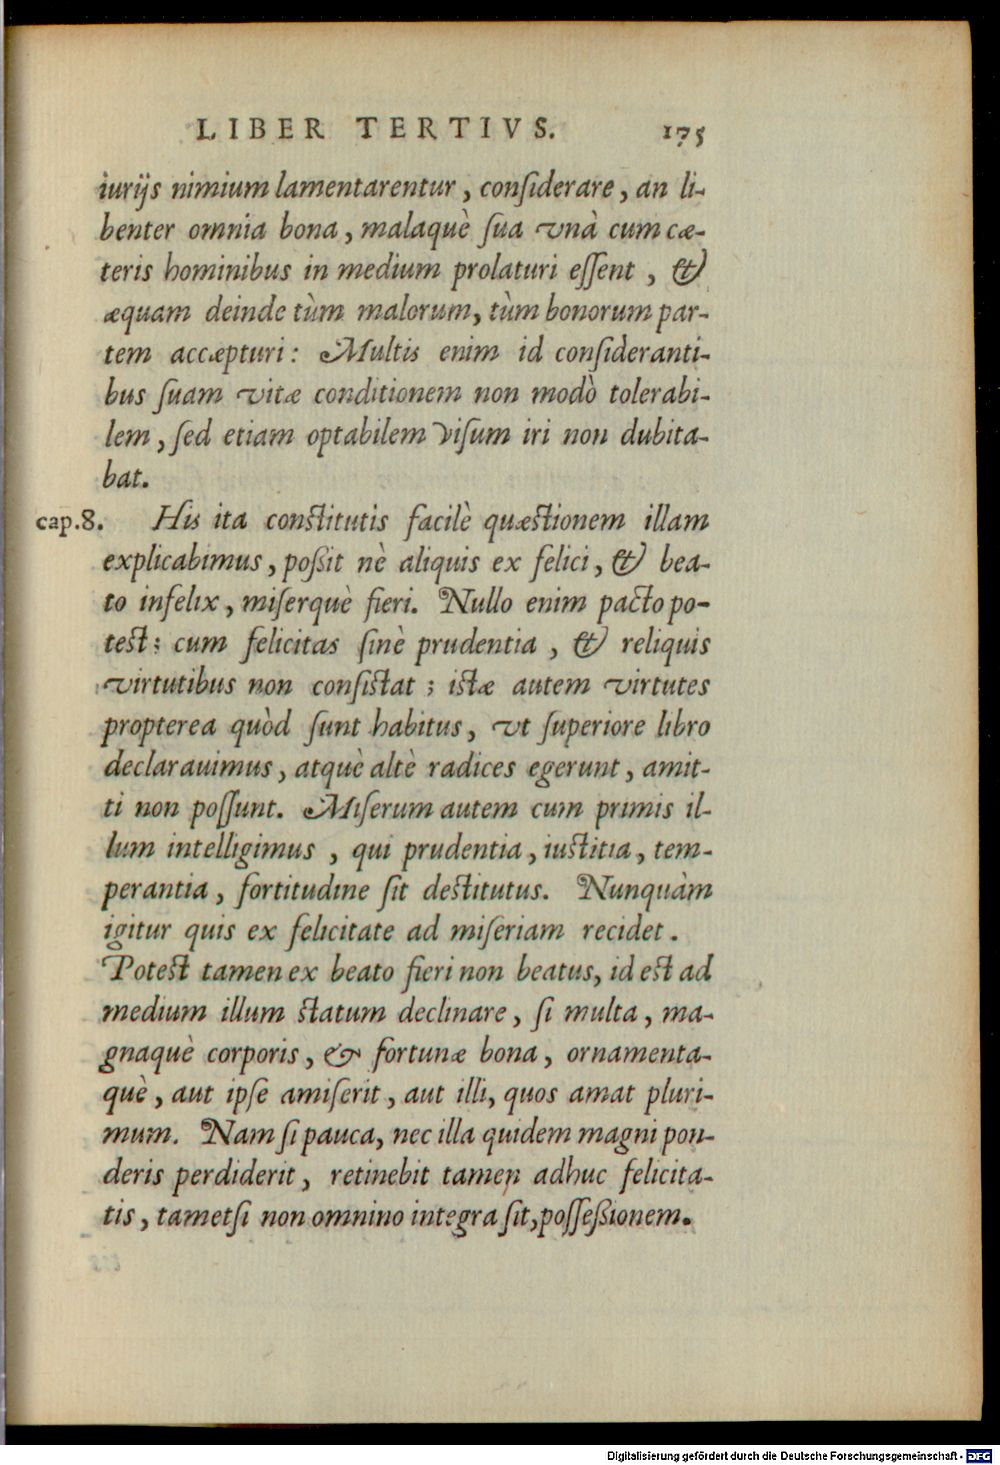 LIBER TERTIVS. 175
iurijs nimium lamentarentur, conſiderare, an li-
benter omnia bona, malaquè ſua vnà cum cæ-
teris hominibus in medium prolaturi eſſent, &
æquam deinde tùm malorum, tùm bonorum par-
tem accæpturi: Multis enim id conſideranti-
bus ſuam vitæ conditionem non modò tolerabi-
lem, ſed etiam optabilem viſum iri non dubita-
bat.
cap.8. His ita conſtitutis facilè quæſtionem illam
explicabimus, poßit nè aliquis ex felici, & bea-
to infelix, miſerquè fieri. Nullo enim pacto po-
teſt; cum felicitas ſinè prudentia, & reliquis
virtutibus non conſiſtat; iſtæ autem virtutes
propterea quòd ſunt habitus, vt ſuperiore libro
declarauimus, atquè altè radices egerunt, amit-
ti non poſſunt. Miſerum autem cum primis il-
lum intelligimus, qui prudentia, iuſtitia, tem-
perantia, fortitudine ſit deſtitutus. Nunquàm
igitur quis ex felicitate ad miſeriam recidet.
Poteſt tamen ex beato fieri non beatus, id eſt ad
medium illum ſtatum declinare, ſi multa, ma-
gnaquè corporis, & fortunæ bona, ornamenta-
què, aut ipſe amiſerit, aut illi, quos amat pluri-
mum. Nam ſi pauca, nec illa quidem magni pon-
deris perdiderit, retinebit tamen adhuc felicita-
tis, tametſi non omnino integra ſit, poſſeßionem.
Digitalisierung gefördert durch die Deutsche Forschungsgemeinschaft - DFG